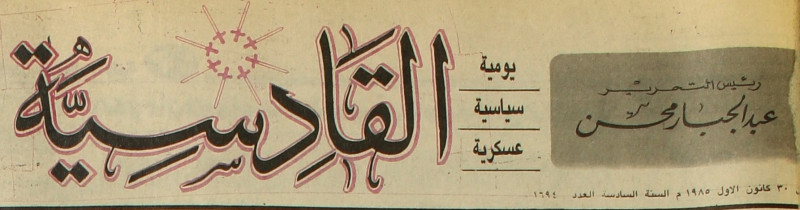 رئيس التحرير
عبد الجبار محسن
يومية
سياسية
عسكرية
القادسية
٣٠ كانون الاول ١٩٨٥ م السنة السادسة العدد ١٦٩٤